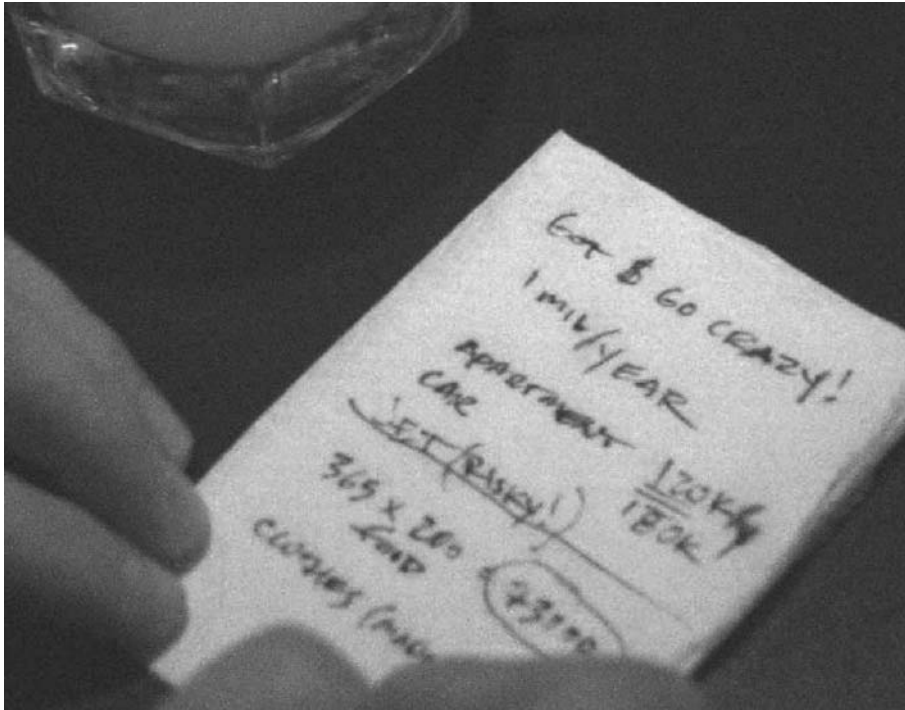 GOT $ GO CRAZY!
1 MIL/YEAR
APARTMENT 120K/y
CAR 180K
JET (RISKY!)
365 x 200 73000
FOOD
CLOTHES